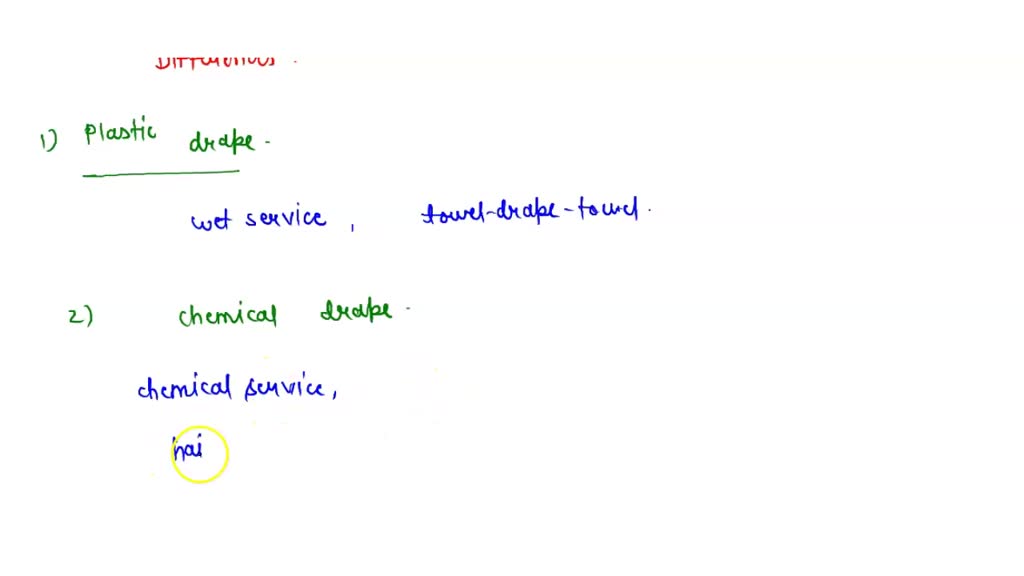 Differences.
1) Plastic drape.
wet service, towel-drape-towel.
2) chemical drape.
chemical service,
hai